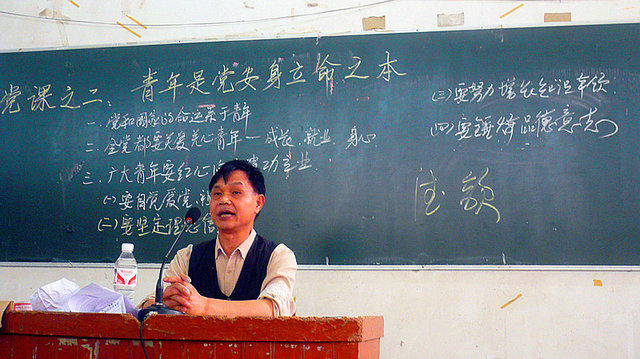 党课之二：青年是党安身立命之本
一、党和国家的命运系于青年
二、全党都要关爱关心青年一成长、就业、身心
三、广大青年要红心向党建功立业
(一)要自觉爱党
(二)要坚定理想信
(三)要努力增长知识本领
(四)要锤炼品德意志